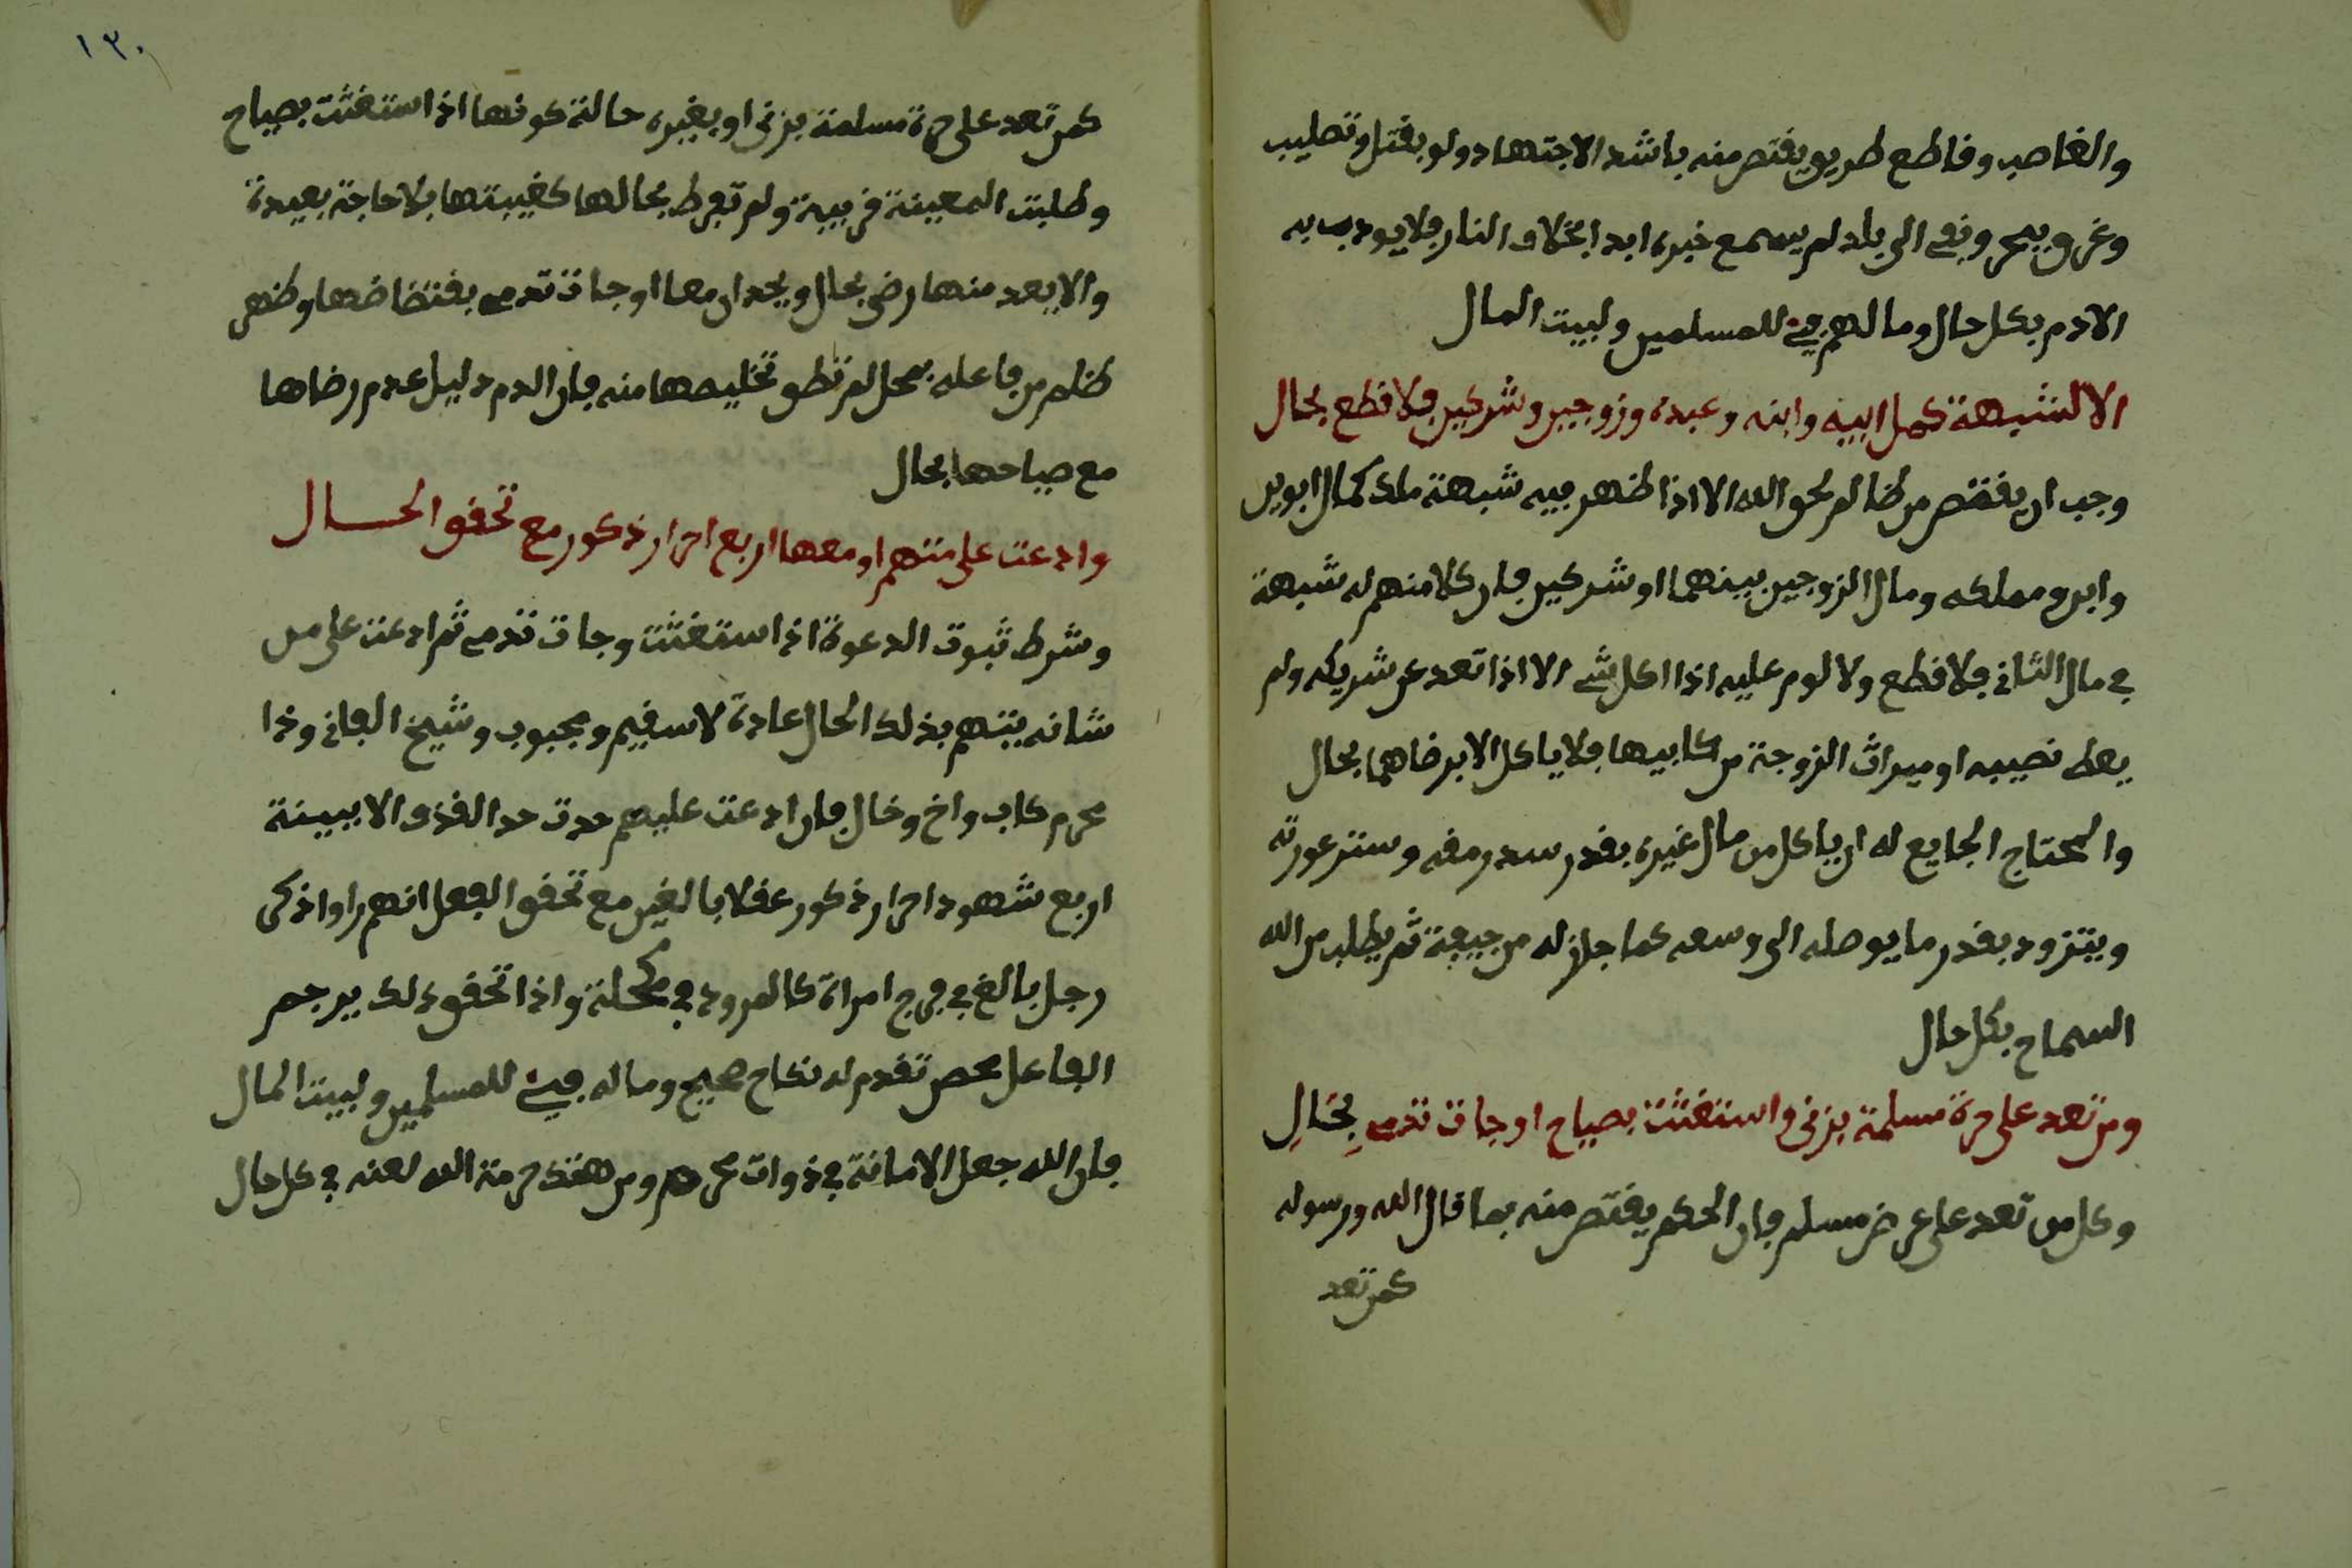 والغاصب وقاطع طريق يقتص منه باشد الاجتهاد ولو بقتل وتصليب
وغرق ببحر ونفي الى بلد لم يسمع خبره ابدا بخلاف النار فلا يودب به
الادم بكل حال ومالهم فيئ للمسلمين ولبيت المال
الا لشبهة كمل ابيه وابنه وعبده وزوجين وشركين فلا قطع بحال
وجب ان يقتص من ظالم لحق الله الا اذا ظهر فيه شبهة ملك كمال ابوين
وابن ومملكه ومال الزوجين بينهما او شركين فان كلا منهم له شبهة
في مال الثاني فلا قطع ولا لوم عليه اذا اكل شي الا اذا تعد عن شريكه ولم
يعط نصيبه او ميراث الزوجة من كابيها فلا ياكل الا برضاهما بحال
والمحتاج الجايع له ان ياكل من مال غيره بقدر سد رمقه وستر عورته
ويتزود بقدر ما يوصله الى وسعه كما جاز له من جيفة ثم يطلب من الله
السماح بكل حال
ومن تعد على حرة مسلمة بزنى واستغثت بصياح او جات تدمي بِحَالِ
وكل من تعد على عرض مسلم فان الحكم يقتص منه بما قال الله ورسوله
كمن تعد
١٣٠
كمن تعد على حرة مسلمة بزنى او بغيره حالة كونها اذا استغثت بصياح
وطلبت المعينة قريبة ولم تفرط بحالها كغيبتها بلا حاجة بعيدة
والا يعد منها رضى بحال ويحدان معا او جات تدمي بفتضاضها وظهر
ظلم من فاعله بمحل لم تطق تخليصها منه فان الدم دليل عدم رضاها
مع صياحها بحال
وادعت على متهم او معها اربع احرار ذكور مع تحقق الحال
وشرط ثبوت الدعوة اذا استغثت وجات تدمي ثم ادعت على من
شانه يتهم بذلك الحال عادة لا سقيم ومجبوب وشيخ الفاني وذا
محرم كاب واخ وخال فان ادعت عليهم حدت حد القذف الا ببينة
اربع شهود احرار ذكور عقلا بالغين مع تحقق الفعل انهم راوا ذكر
رجل بالغ في فرج امراة كالمرود في مكحلة واذا تحقق ذلك يرجم
الفاعل محصن تقدم له نكاح صحيح وماله فيئ للمسلمين ولبيت المال
فان الله جعل الامانة في ذوات محرم ومن هتك حرمة الله لعنه في كل حال